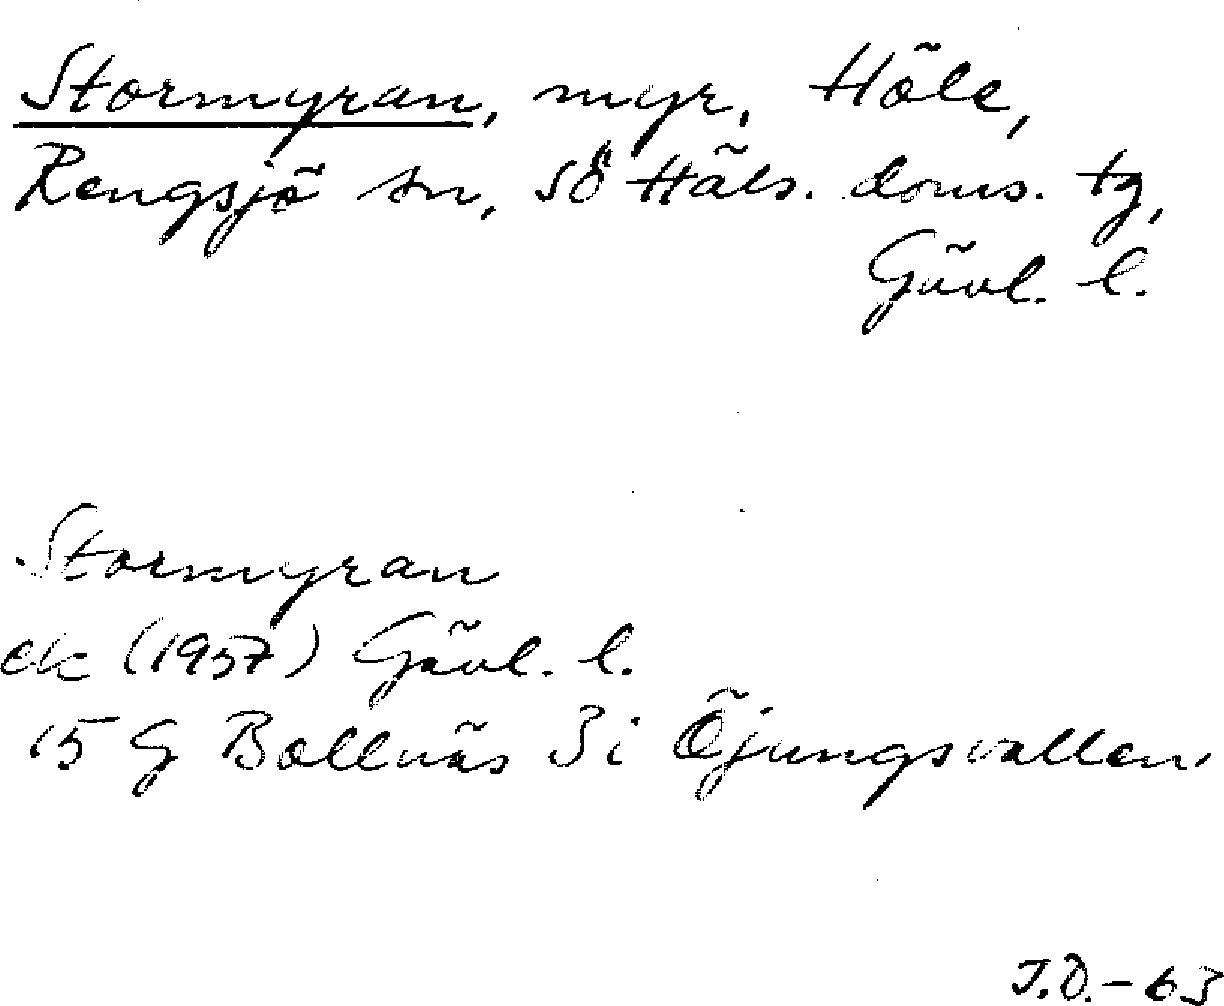 Stormyran, myr, Höle,
Rengsjö sn, SÖ Häls. doms. tg,
Gävl. l.
Stormyran
ek (1957) Gävl. l.
15 G Bollnäs 3i Öjungsvallen
J.Ö.-63